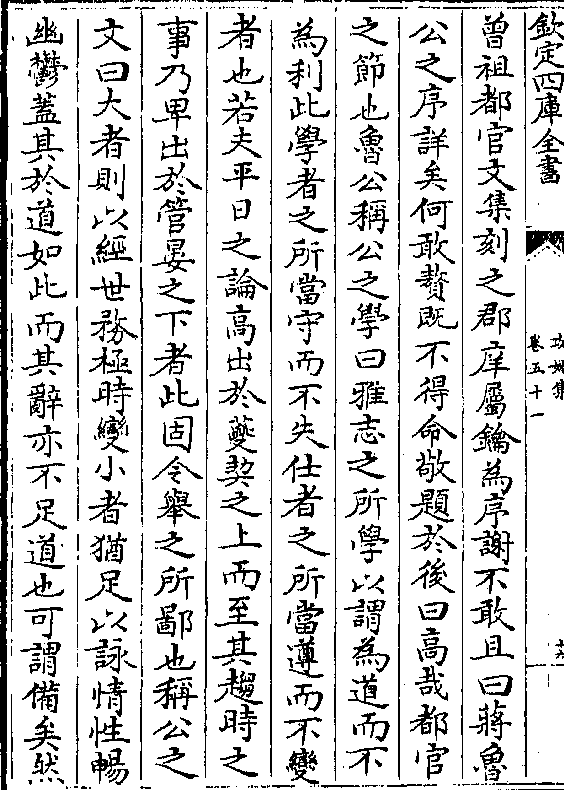 欽定四庫全書
攻媿集
卷五十一
曾祖都官文集刻之郡庠屬鑰為序謝不敢且曰蔣魯
公之序詳矣何敢贅既不得命敬題於後曰高哉都官
之節也魯公稱公之學曰雅志之所學以謂為道而不
為利此學者之所當守而不失仕者之所當遵而不變
者也若夫平日之論高出於夔契之上而至其趨時之
事乃卑出於管晏之下者此固令舉之所鄙也稱公之
文曰大者則以經世務極時變小者猶足以詠情性暢
幽鬱蓋其於道如此而其辭亦不足道也可謂備矣然